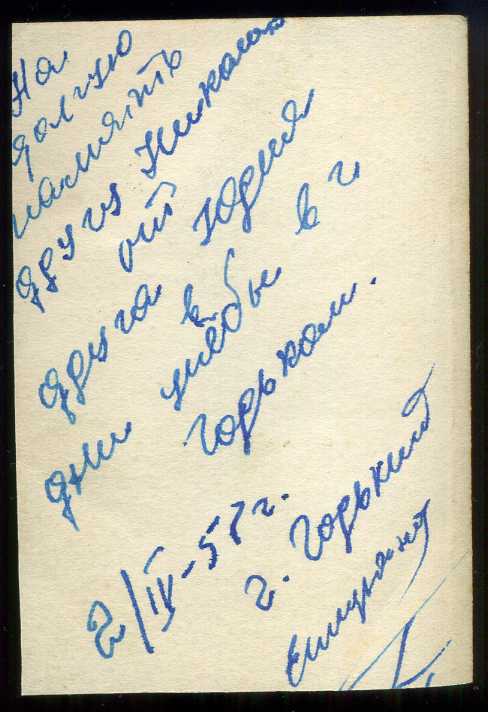 На
долгую
память
другу Николаю
от
друга Юрия
в
дни учебы в г
Горьком.
2/IV-57г.
г. Горький